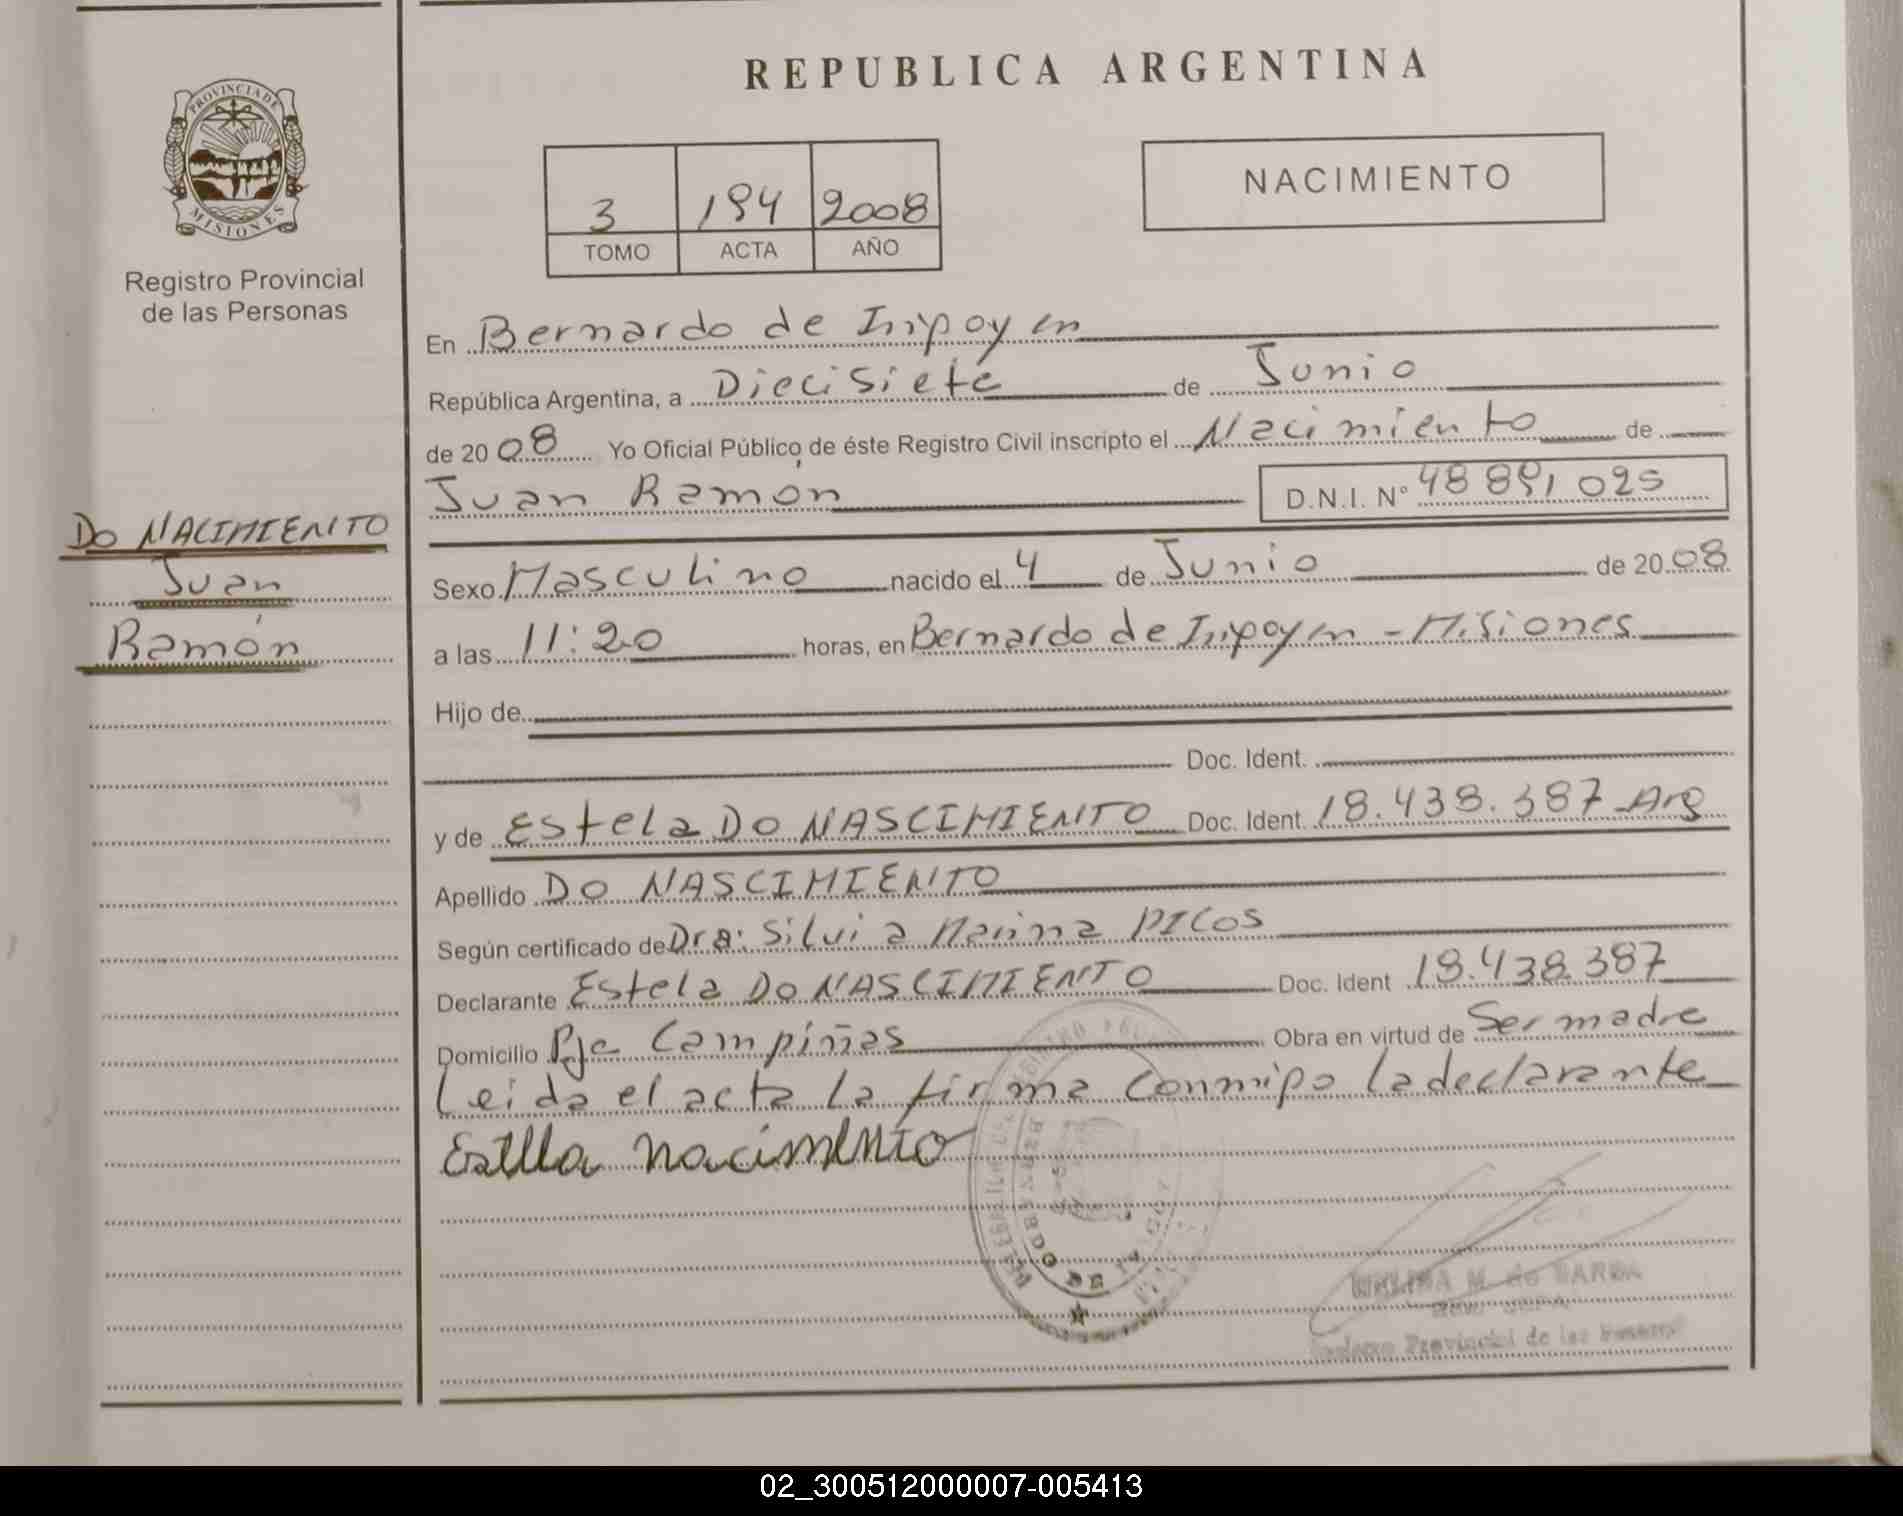 REPUBLICA ARGENTINA
PROVINCIA DE
MISIONES
Registro Provincial
de las Personas
3 194 2008
TOMO ACTA AÑO
NACIMIENTO
En Bernardo de Irigoyen
República Argentina, a Diecisiete de Junio
de 2008 Yo Oficial Público de éste Registro Civil inscripto el Nacimiento de
Juan Ramón D.N.I. Nº 48 891 025
DO NACIMIENTO
Juan
Ramón
Sexo Masculino nacido el 4 de Junio de 2008
a las 11:20 horas, en Bernardo de Irigoyen - Misiones
Hijo de
Doc. Ident.
y de Estela DO NASCIMIENTO Doc. Ident. 18.438.387 Arg
Apellido DO NASCIMIENTO
Según certificado de Dra. Silvia Marina PICOS
Declarante Estela DO NASCIMIENTO Doc. Ident 18.438.387
Domicilio Pje Campiñas Obra en virtud de Ser madre
Leida el acta la firma conmigo la declarante
Estella nacimento
BERNARDO DE
M. de
Provincial de las
02_300512000007-005413